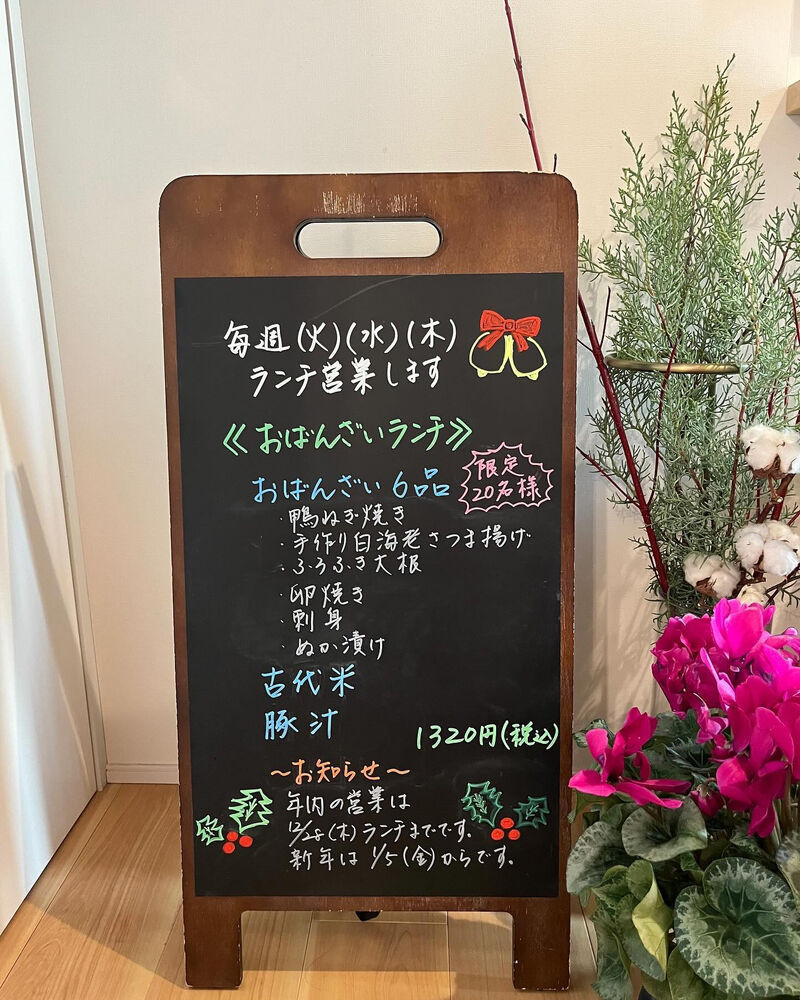 毎週(火)(水)(木)
ランチ営業します
≪おばんざいランチ≫
おばんざい6品
限定
20名様
・鴨ねぎ焼き
・手作り白海老さつま揚げ
・ふろふき大根
・卵焼き
・刺身
・ぬか漬け
古代米
豚汁
1320円(税込)
～お知らせ～
年内の営業は
12/28(木)ランチまでです。
新年は1/5(金)からです。